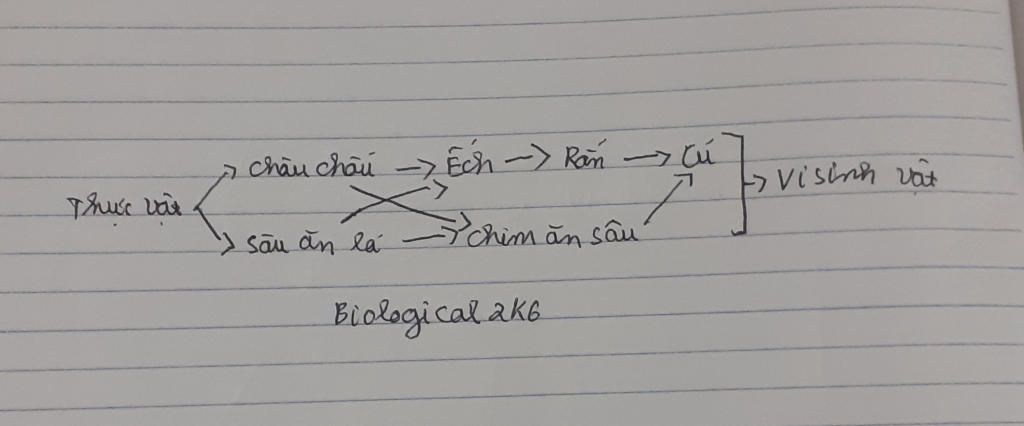 Châu chấu → Ếch → Rắn → Cú
Thực vật → Vi sinh vật
Sâu ăn lá → Chim ăn sâu
Biological 2K6